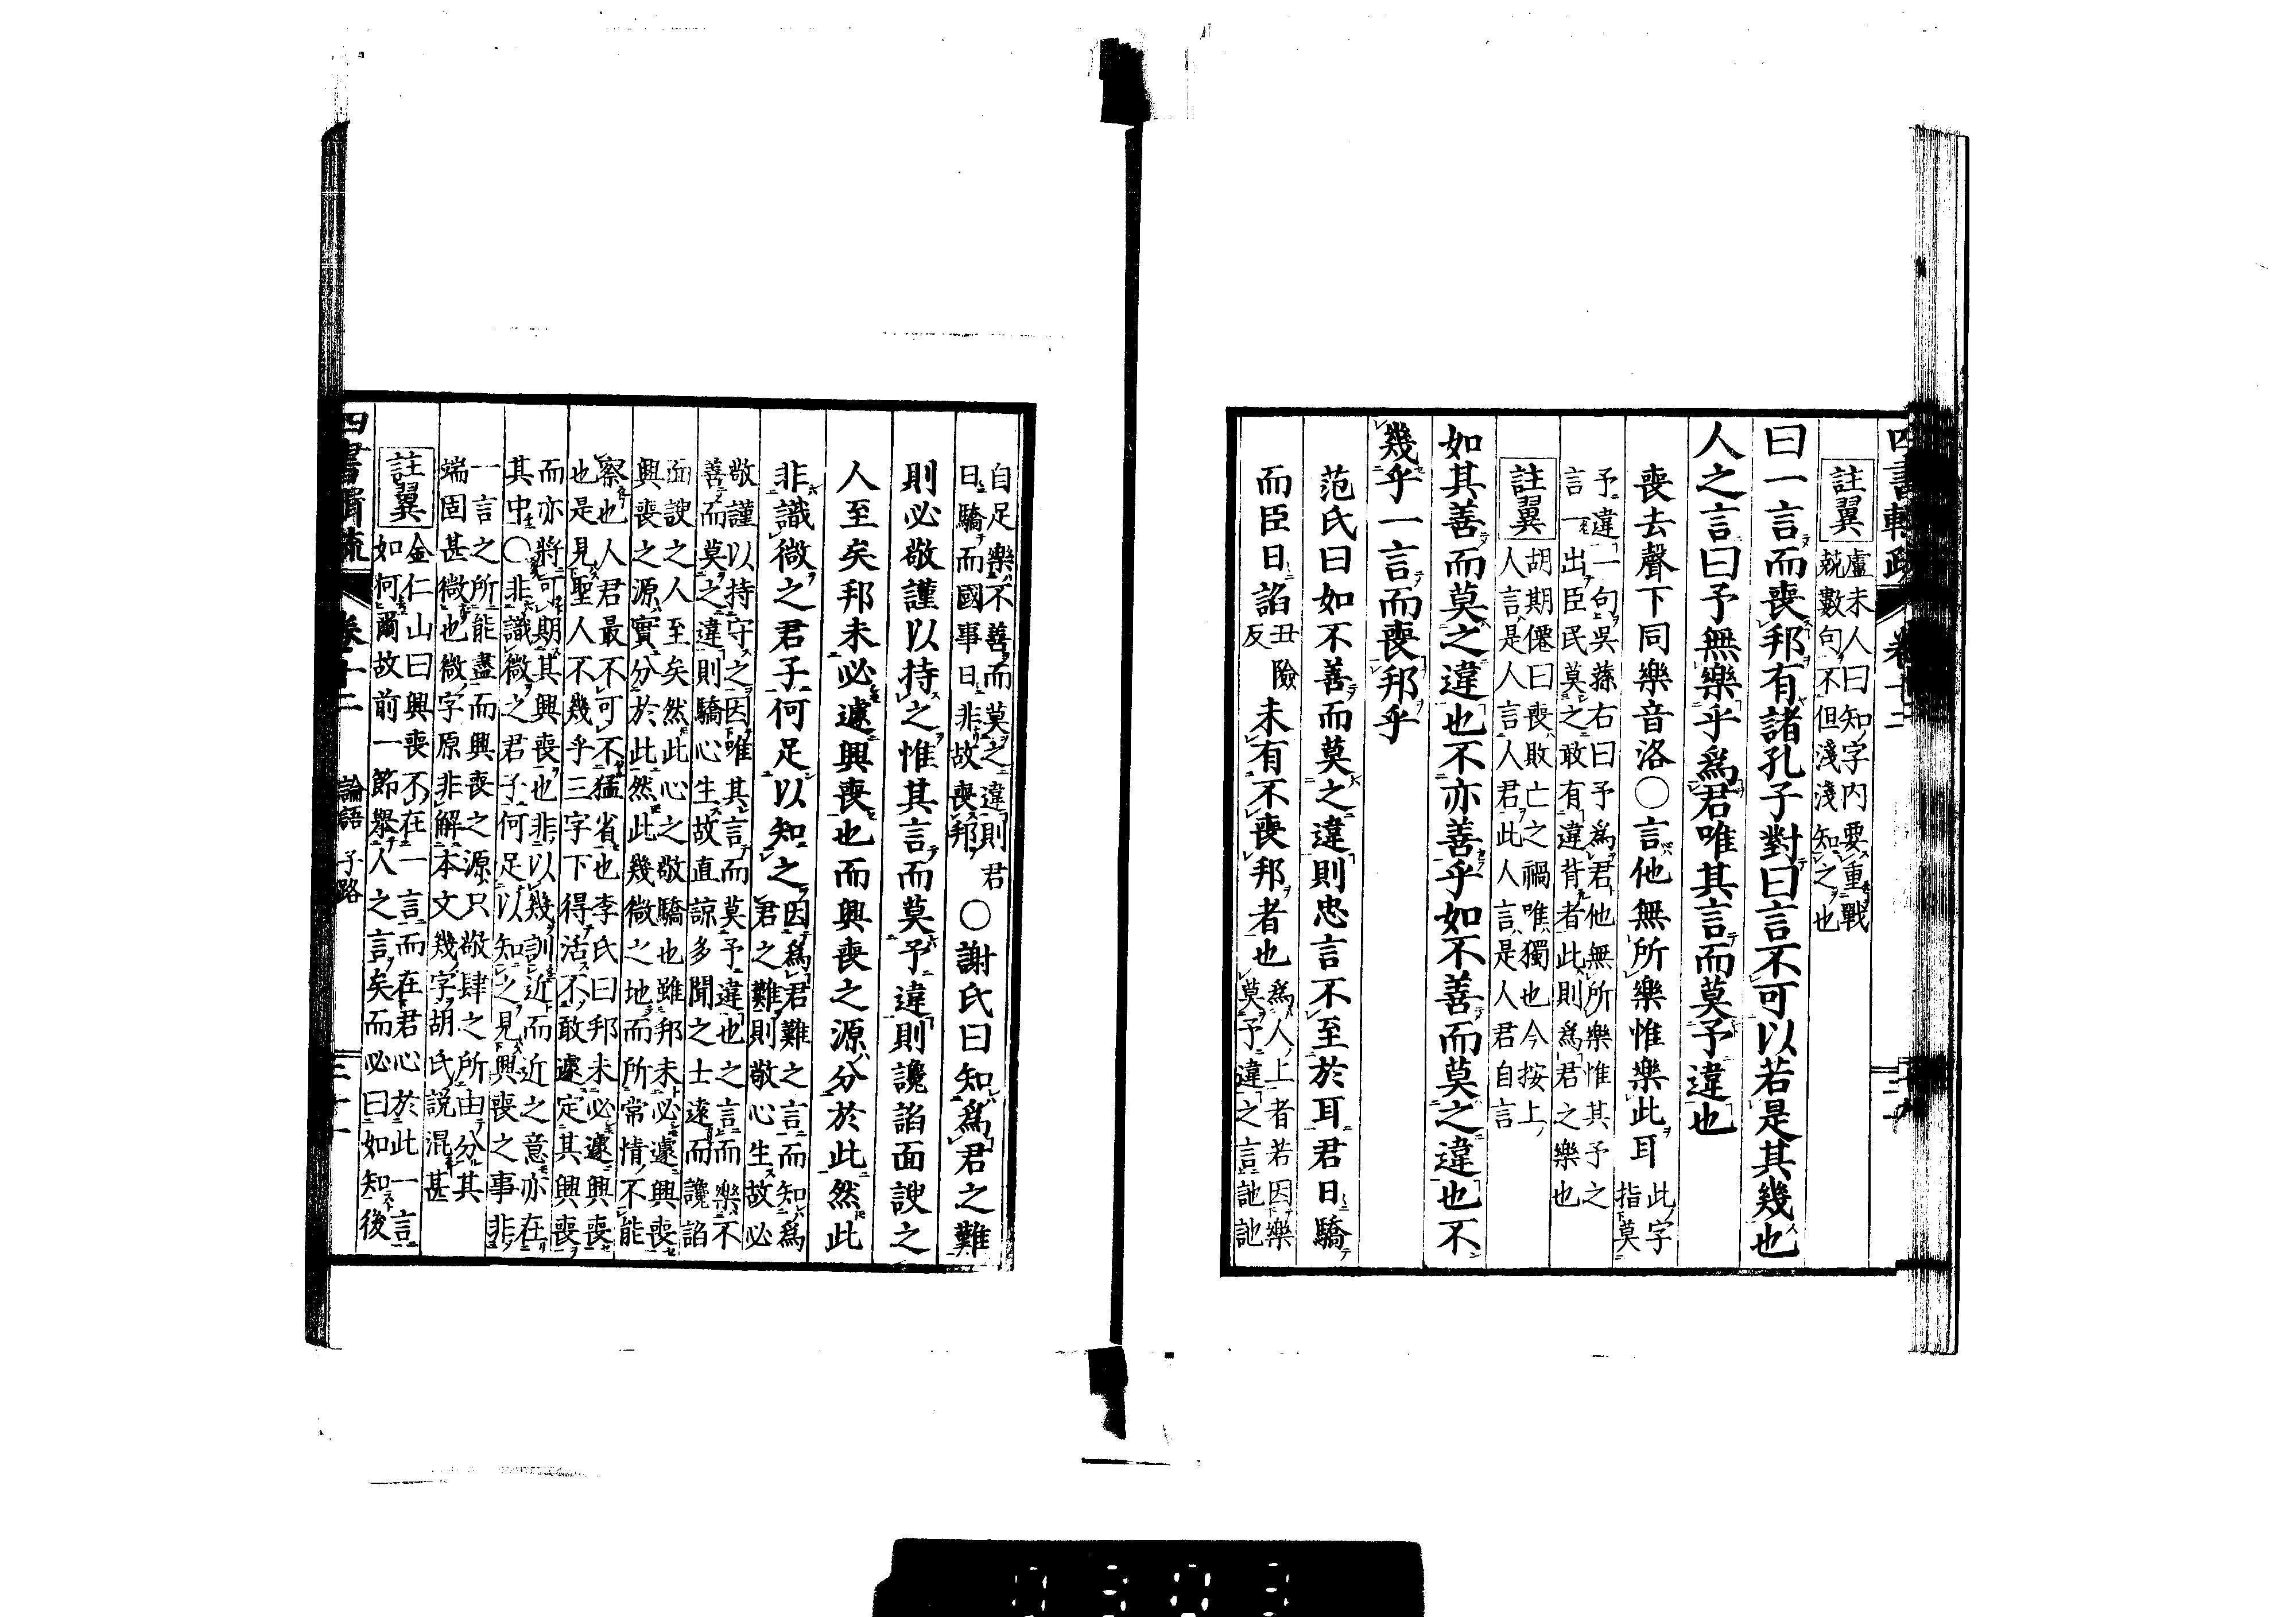 註翼
盧未人曰知字內要重戰
兢數句不但淺淺知之也
曰一言而喪邦有諸孔子對曰言不可以若是其幾也
人之言曰予無樂乎爲君唯其言而莫予違也
喪去聲下同樂音洛○言他無所樂惟樂此耳
此字
指莫
予違一句吳蓀右曰予爲君他無所樂惟其予之
言一出臣民莫之敢有違背者此則爲君之樂也
註翼
胡期僊曰喪敗亡之禍唯獨也今按上
人言是人言人君此人言是人君自言
如其善而莫之違也不亦善乎如不善而莫之違也不
幾乎一言而喪邦乎
范氏曰如不善而莫之違則忠言不至於耳君日驕
而臣日諂
丑險
反
未有不喪邦者也
爲人上者若因樂
莫予違之言訑訑
自足樂不善而莫之違則君
日驕而國事日非故喪邦
○謝氏曰知爲君之難
則必敬謹以持之惟其言而莫予違則讒諂面諛之
人至矣邦未必遽興喪也而興喪之源分於此然此
非識微之君子何足以知之
因爲君難之言而知爲
君之難則敬心生故必
敬謹以持守之因唯其言而莫予違也之言而樂不
善而莫之違則驕心生故直諒多聞之士遠而讒諂
面諛之人至矣然此心之敬驕也雖邦未必遽興喪
興喪之源實分於此然此幾微之地而所常情不能
察也人君最不可不猛省也李氏曰邦未必遽興喪
也是見聖人不幾乎三字下得活不敢遽定其興喪
而亦將可期其興喪也非以幾訓近而近之意亦在
其中○非識微之君子何足以知之見興喪之事非
一言之所能盡而興喪之源只敬肆之所由分其
端固甚微也微字原非解本文幾字胡氏說混甚
註翼
金仁山曰興喪不在一言而在君心於此一言
如何爾故前一節舉人之言矣而必曰如知後
論語 子路